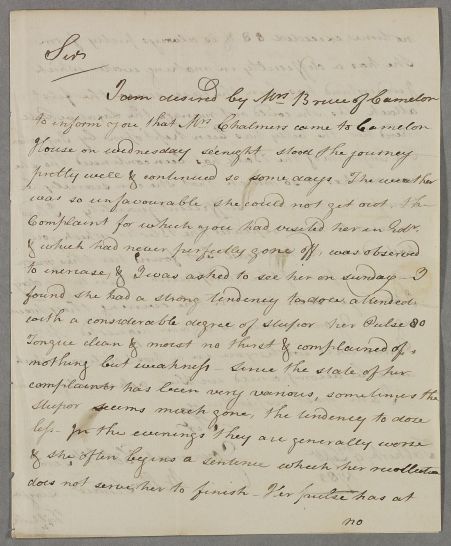 Sir
I am desired by Mrs Bruce of Camelon
to inform you that Mrs Chalmers came to Camelon
House on wednesday se'enight stood the journey
pretty well & continued so some days. The weather
was so unfavourable she could not get out the
Complaint for which you had visited her in Edr.
& which had never perfectly gone off, was observed
to increase, & I was asked to see her on sunday - I
found she had a strong tendency to doze attended
with a considerable degree of stupor her Pulse 80
Tongue clean & moist no thirst & complained of
nothing but weakness - Since the state of her
complaints has been very various, sometimes the
stupor seems much gone, the tendency to doze
less - In the evenings they are generally worse
& she often begins a sentence which her recollection
does not serve her to finish - Her pulse has at
no